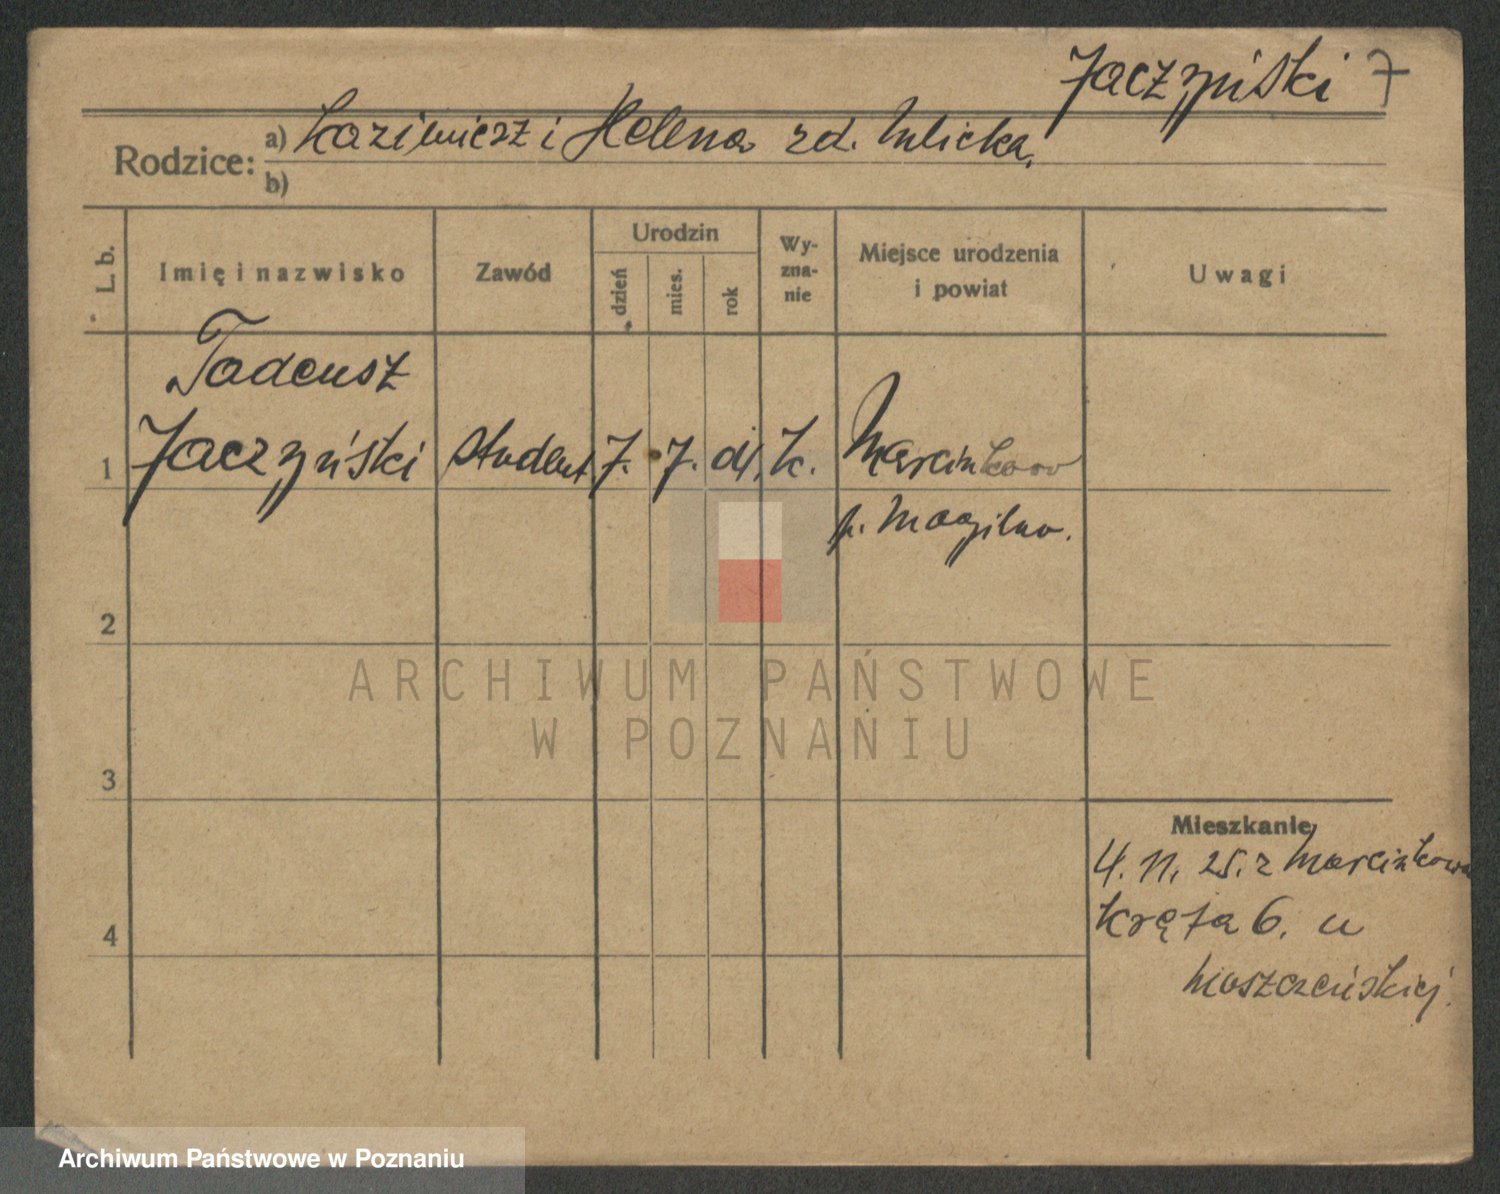 Jaczyński 7
Rodzice: a) Kazimierz i Helena zd. Mlicka.
b)
L. b.
Imię i nazwisko
Zawód
Urodzin
dzień
mies.
rok
Wy-
zna-
nie
Miejsce urodzenia
i powiat
Uwagi
Tadeusz
1 Jaczyński student 7. 7. 01. k. Marcinkowo
p. Mogilno.
2
3
4
ARCHIWUM PAŃSTWOWE
W POZNANIU
Mieszkanie
4. 11. 25. z Marcinkowa
Kręta 6. u
Moszczeńskiej.
Archiwum Państwowe w Poznaniu